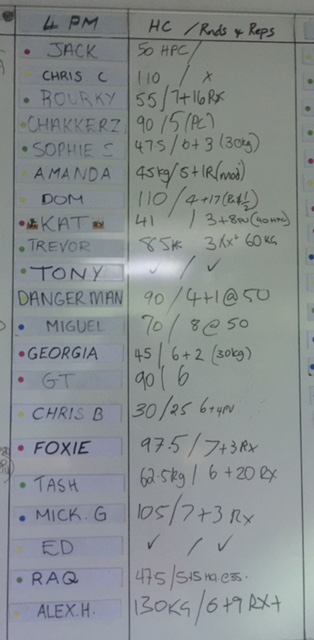 4 PM HC / Rnds & Reps
JACK 50 HPC /
CHRIS C 110 / X
ROURKY 55 / 7+16 RX
CHAKKERZ 90 / 5 (PC)
SOPHIE S 47.5 / 6+3 (30kg)
AMANDA 45kg / 5+1R (mod)
DOM 110 / 4+17
KAT 41 / 3+8PU
TREVOR 85K 3 60KG
TONY ✓ / ✓
DANGERMAN 90 / 4+1 @ 50
MIGUEL 70 / 8 @ 50
GEORGIA 45 / 6+2 (30kg)
GT 90 / 6
CHRIS B 30/25 6+4PU
FOXIE 97.5 / 7+3 RX
TASH 62.5kg / 6+20 RX
MICK.G 105 / 7+3 RX
ED ✓ / ✓
RAQ 47.5 /
ALEX.H. 130KG / 6+9 RX+